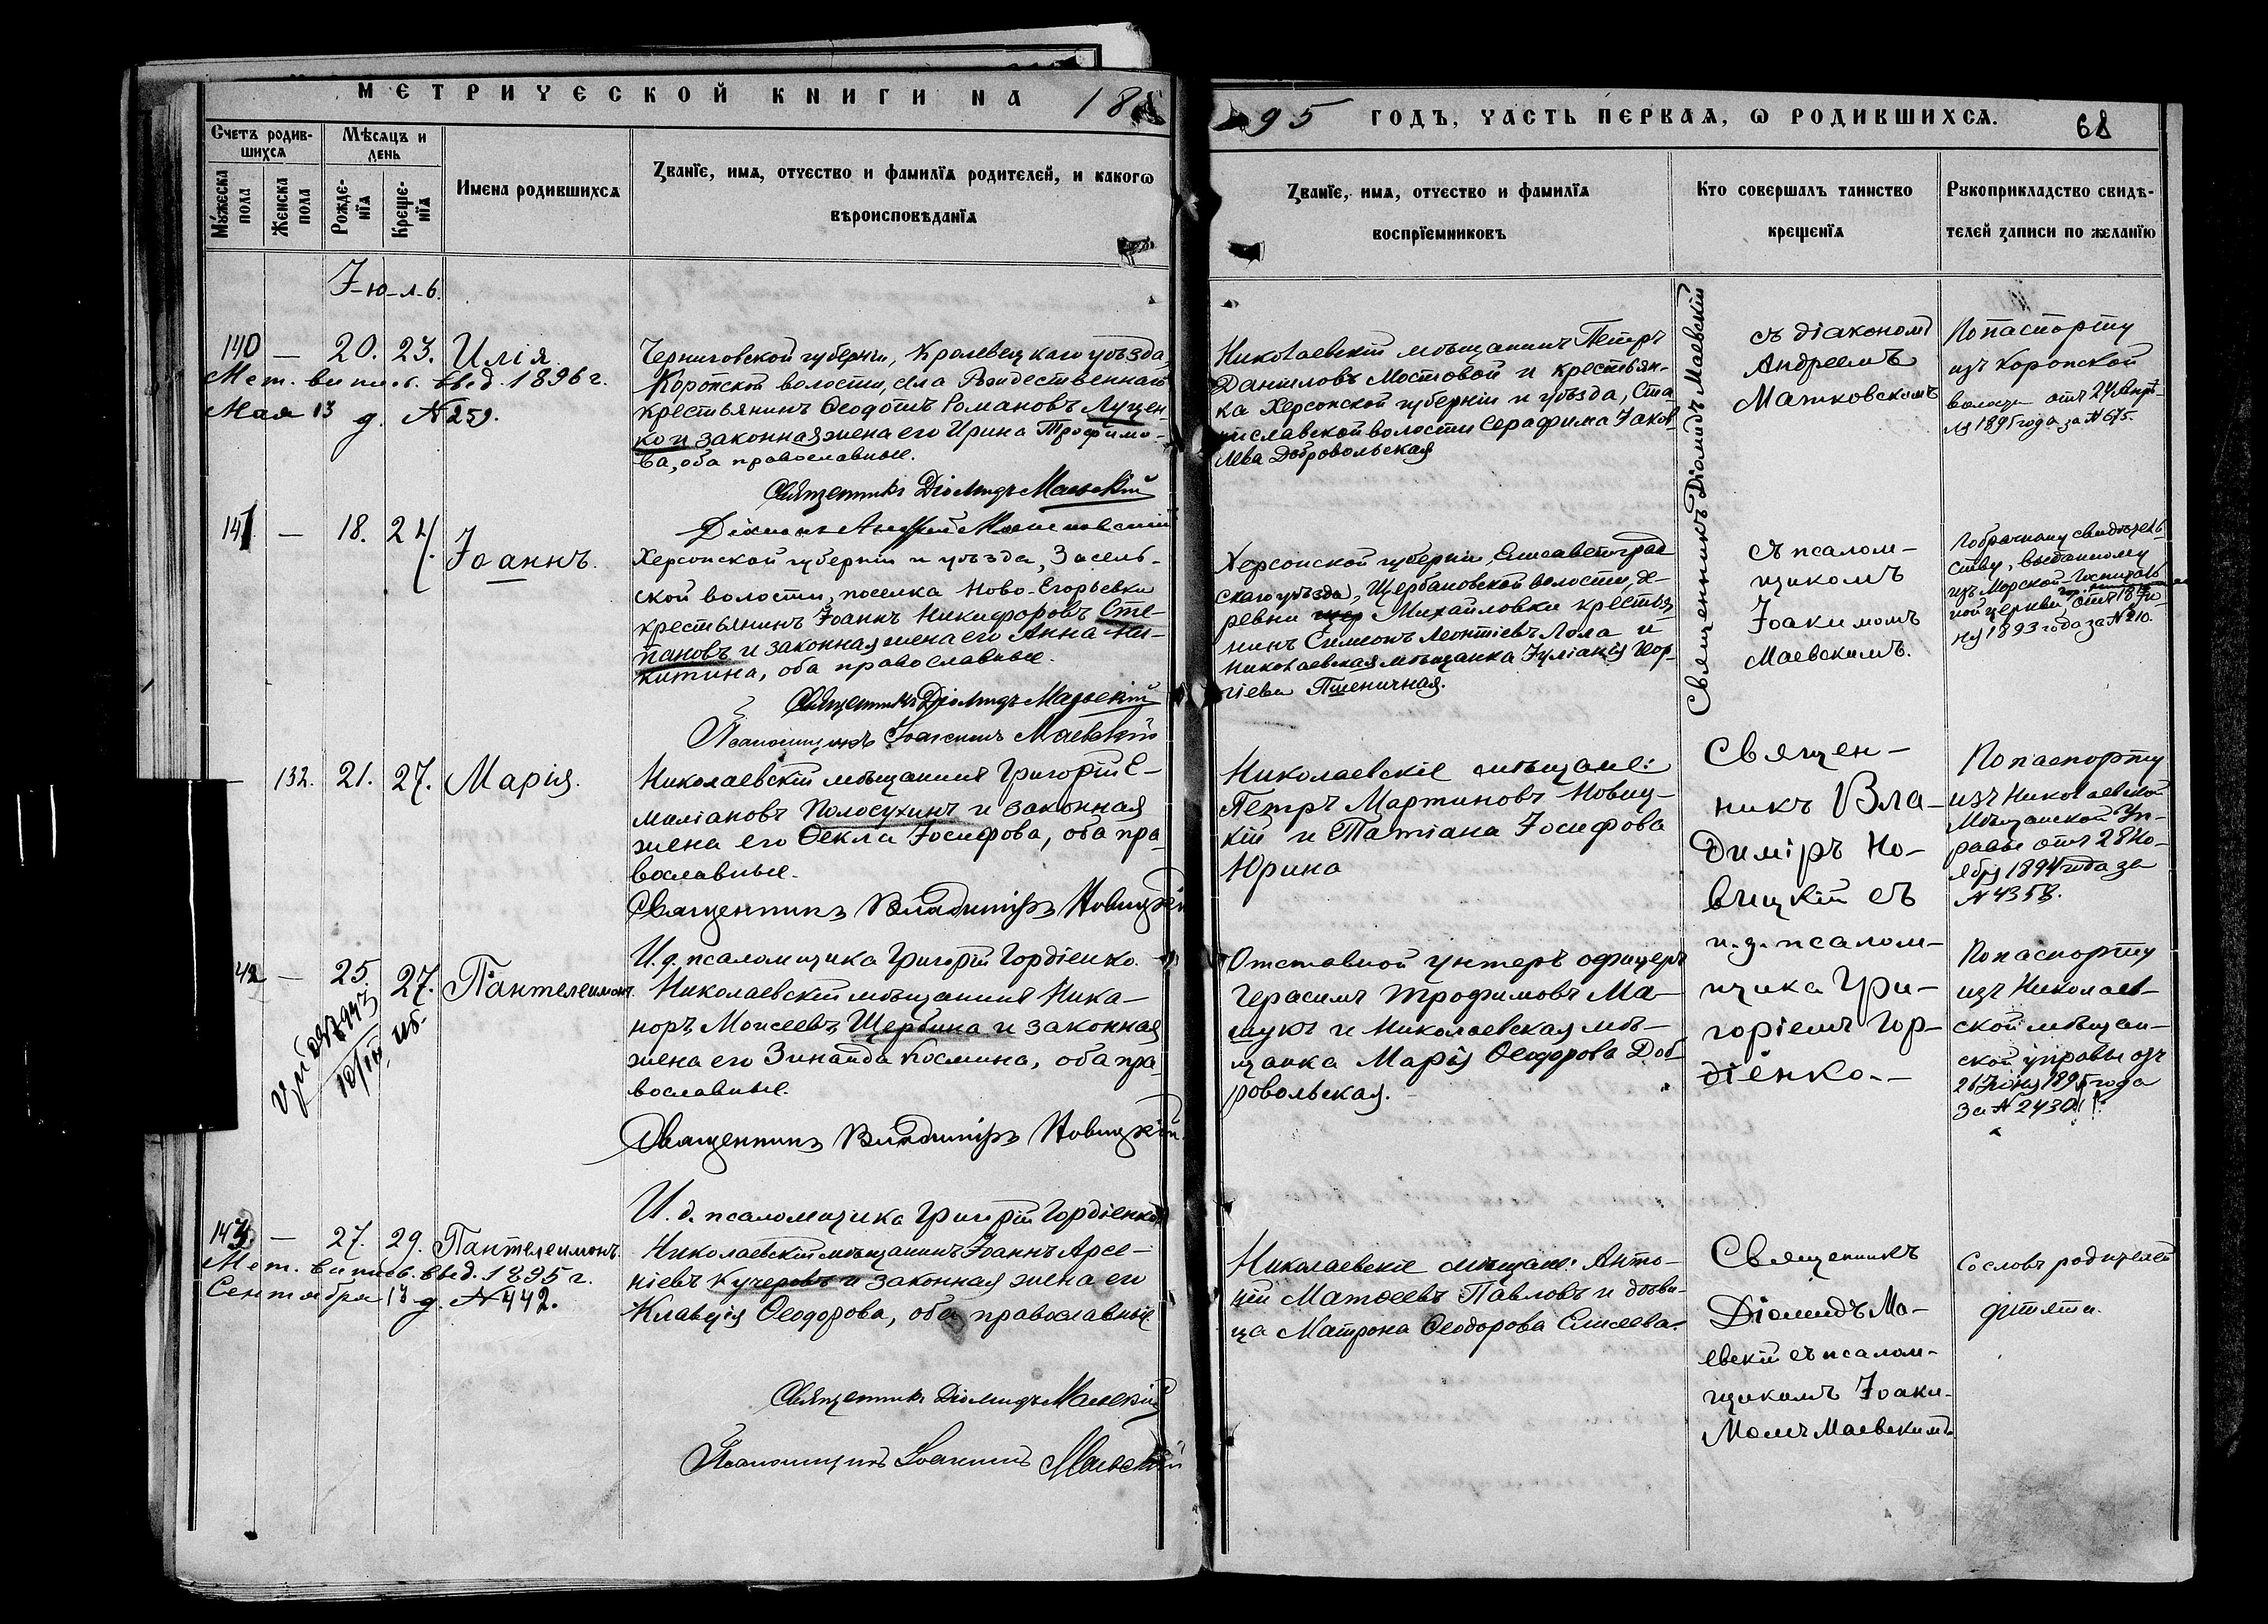 МЕТРИЧЕСКОЙ КНИГИ НА 18
95 ГОДЪ, ЧАСТЬ ПЕРВАЯ, Ѡ РОДИВШИХСѦ.
68
Счетъ родив-
шихсѧ
Мѣсѧцъ и
день
Мꙋжеска
пола
Женска
пола
Рожде-
нїѧ
Креще-
нїѧ
Имена родившихсѧ
Званїе, имѧ, отчество и фамилїѧ родителей, и какогѡ
вѣроисповѣданїѧ
Званїе, имѧ, отчество и фамилїѧ
воспрїемниковъ
Кто совершалъ таинство
крещенїѧ
Рꙋкоприкладство свидѣ-
телей записи по желанїю
І-ю-л-ь.
140 — 20. 23. Илія.
Мет. выпись. выд. 1896 г.
Мая 13 д. № 259.
Черниговской губерніи, Кролевецкаго уѣзда,
Коропской волости, села Рождественнаго
крестьянинъ Ѳеодотъ Романовъ Луцен-
ко и законная жена его Ирина Трофимо-
ва, оба православные.
Священникъ Діомидъ Маевскій
Діаконъ Андрей Матковскій
Николаевскій мѣщанинъ Петръ
Даниловъ Мостовой и крестьян-
ка Херсонской губерніи и уѣзда, Ста-
ниславской волости Серафима Іаков-
лева Добровольская
Священникъ Діомидъ Маевскій
съ діакономъ
Андреемъ
Матковскимъ
По паспорту
изъ Коропской
волости отъ 24 Апрѣ-
ля 1895 года за № 675.
141 — 18. 24. Іоаннъ.
Херсонской губерніи и уѣзда, Засель-
ской волости, поселка Ново-Егорьевки
крестьянинъ Іоаннъ Никифоровъ Сте-
пановъ и законная жена его Анна Ни-
китина, оба православные.
Священникъ Діомидъ Маевскій
Псаломщикъ Іоакимъ Маевскій
Херсонской губерніи, Елисаветград
скаго уѣзда, Щербановской волости, де-
ревни Михайловки крестья
нинъ Симеонъ Леонтіевъ Лола и
Николаевская мѣщанка Іуліанія Геор-
гіева Пшеничная.
съ псалом-
щикомъ
Іоакимомъ
Маевскимъ.
По брачному свидѣтель-
ству, выданному
изъ Морской Госпиталь
ной церкви отъ 18 Ію-
ня 1893 года за № 210.
132. 21. 27. Марія.
Николаевскій мѣщанинъ Григорій Е-
миліановъ Полосухинъ и законная
жена его Ѳекла Іосифова, оба пра-
вославные.
Священникъ Владиміръ Новицкій
И. д. псаломщика Григорій Гордіенко.
Николаевскіе мѣщане:
Петръ Мартиновъ Новиц-
кій и Татіана Іосифова
Юрина
Священ-
никъ Вла-
диміръ Но-
вицкій съ
и. д. псалом-
щика Гри-
горіемъ Гор-
діенко.-
По паспорту
изъ Николаевской
Мѣщанской Уп-
равы отъ 28 Но-
ября 1894 года за
№ 4353.
42 — 25. 27. Пантелеимонъ.
Николаевскій мѣщанинъ Ника-
норъ Моисеевъ Щербина и законная
жена его Зинаида Космина, оба пра-
вославные.
Священникъ Владиміръ Новицкій.
И. д. псаломщика Григорій Гордіенко
Отставной унтеръ офицеръ
Герасимъ Трофимовъ Ма-
щукъ и Николаевская мѣ-
щанка Марія Ѳеодорова Доб-
ровольская.
По паспорту
изъ Николаев-
ской мѣщан-
ской управы отъ
26 Іюня 1895 года
за № 2430.
143 — 27. 29. Пантелеимонъ.
Мет. выпись. выд. 1895 г.
Сентября 13 д. № 442.
Николаевскій мѣщанинъ Іоаннъ Арсе-
ніевъ Кучеровъ и законная жена его
Клавдія Ѳеодорова, оба православные
Священникъ Діомидъ Маевскій
Псаломщикъ Іоакимъ Маевскій
Николаевскіе мѣщане: Анто-
ній Матѳеевъ Павловъ и дѣви-
ца Матрона Ѳеодорова Елисеева.
Священникъ
Діомидъ Ма-
евскій съ псалом-
щикомъ Іоаки-
момъ Маевскимъ
Со словъ родителей
дитяти.